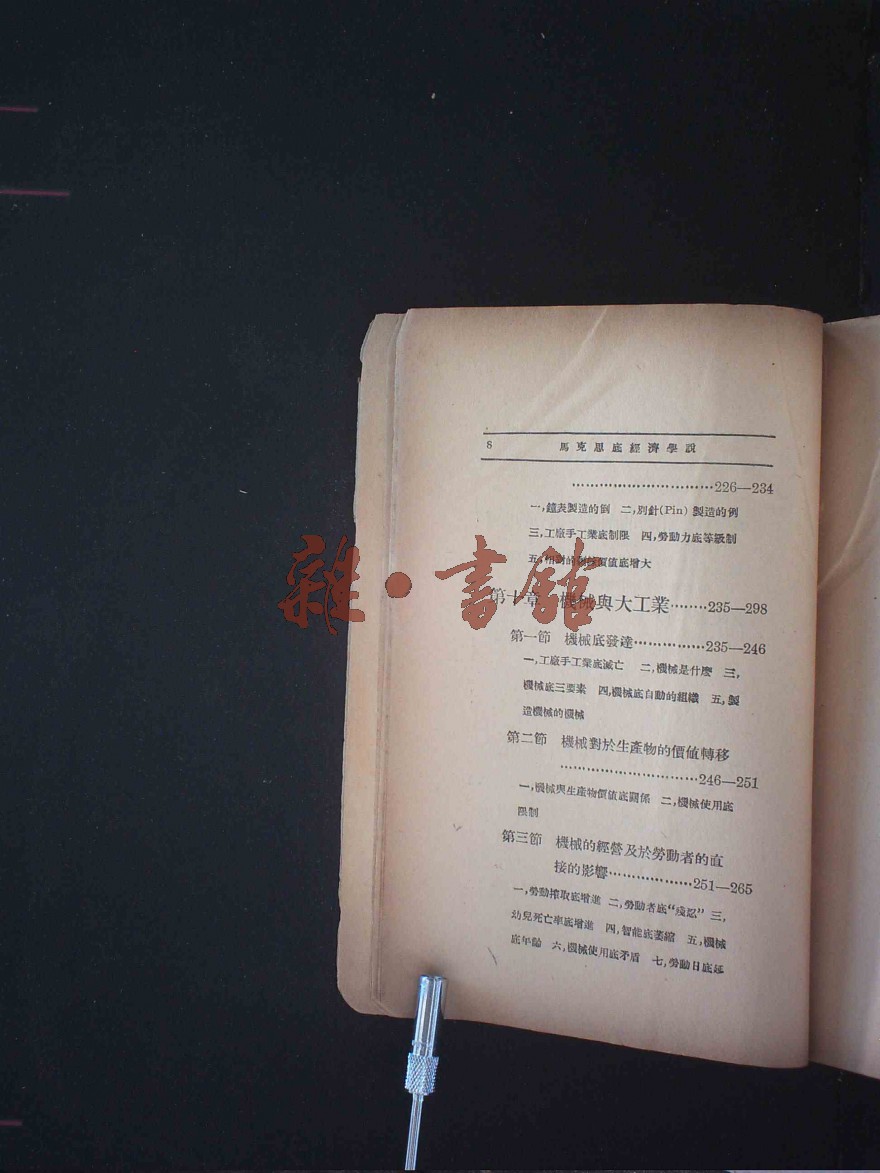 8 馬克思底經濟學說
……………………………226—234
一,鐘表製造的例 二,別針(Pin) 製造的例
三,工廠手工業底制限 四,勞動力底等級制
五,相對的剩餘價值底增大
第十章 機械與大工業………235—298
第一節 機械底發達……………235—246
一,工廠手工業底滅亡 二,機械是什麼 三,
機械底三要素 四,機械底自動的組織 五,製
造機械的機械
第二節 機械對於生產物的價值轉移
……………………………246—251
一,機械與生產物價值底關係 二,機械使用底
限制
第三節 機械的經營及於勞動者的直
接的影響………………251—265
一,勞動搾取底增進 二,勞動者底“殘忍” 三,
幼兒死亡率底增進 四,智能底萎縮 五,機械
底年齡 六,機械使用底矛盾 七,勞動日底延
雜·書館